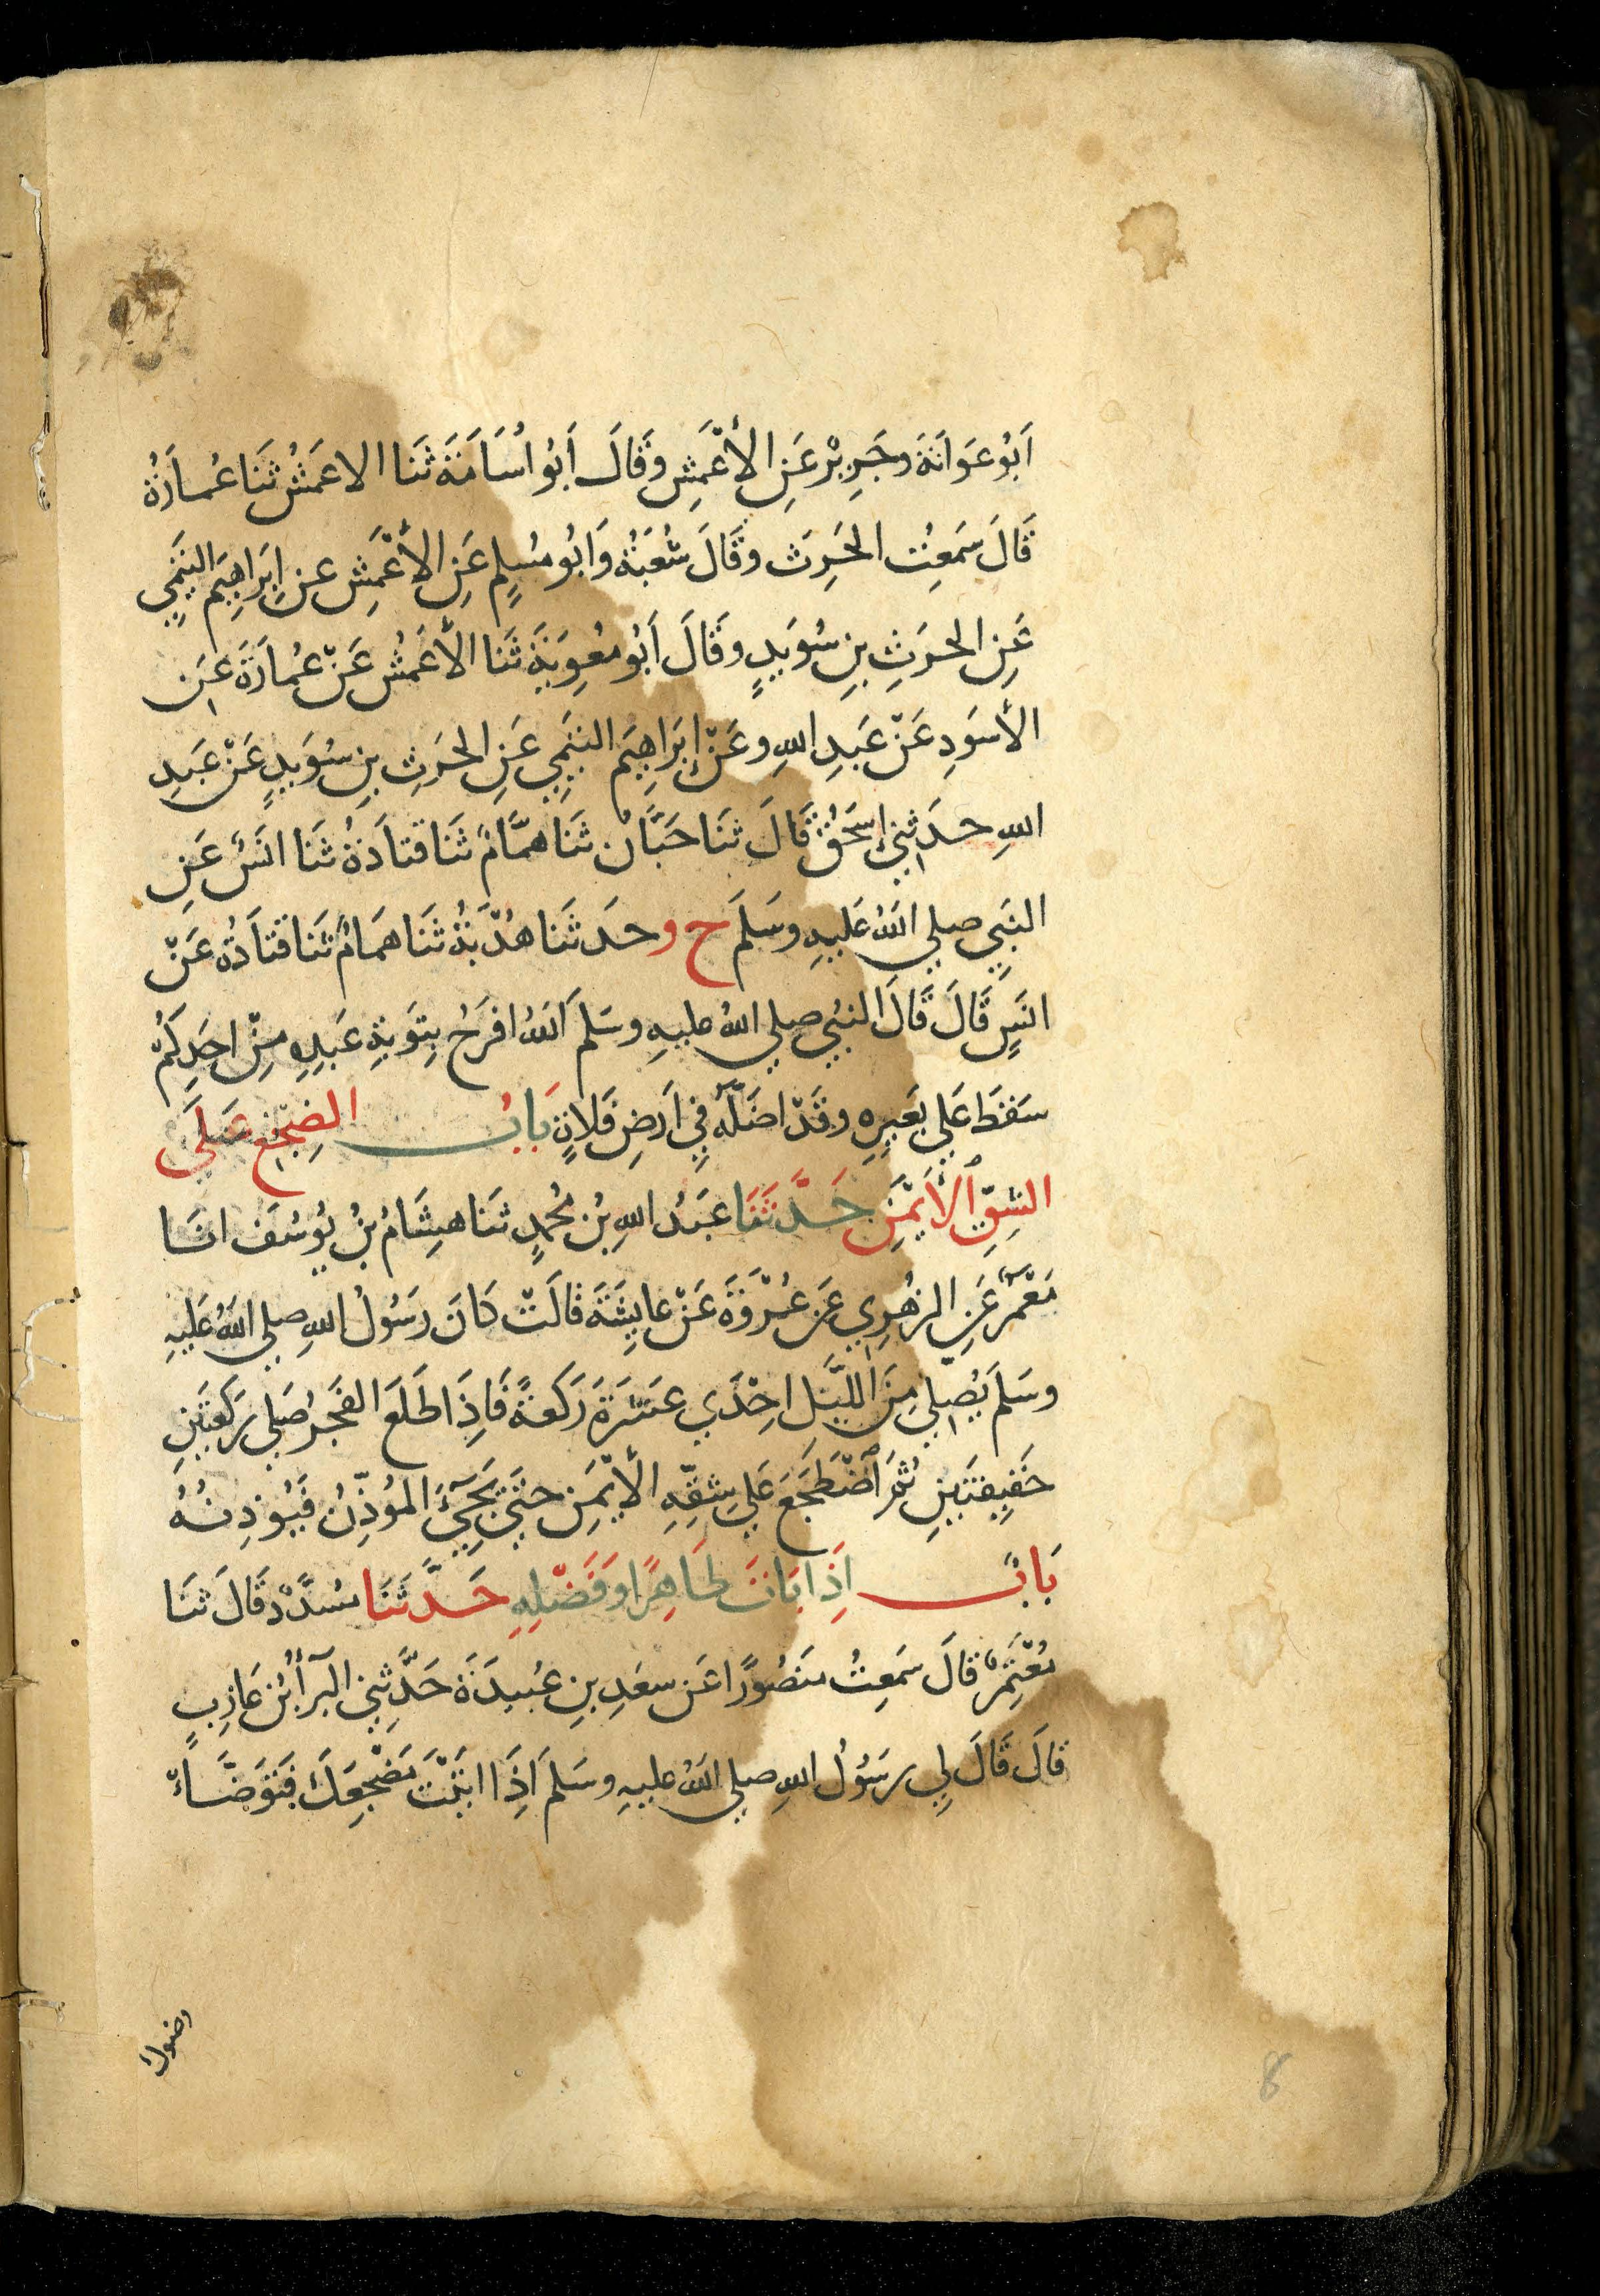 اَبُو عَوَانَةَ وجَرِيْرٌ عَنِ الأَعْمَشِ وقَالَ اَبُو اُسَامَةَ ثَنَا الاعمَشُ ثَنَا عُمارَةُ
قَالَ سَمِعْتُ الحَرِثَ وقَالَ شُعْبَةُ وَابُو مُسْلِمٍ عَنِ الأَعْمَشِ عن اِبرَاهِيمَ التَّيمِي
عَنِ الحرَثِ بنِ سُوَيدٍ وقَالَ اَبُو مُعوِيَةَ ثَنَا الأَعْمَشُ عَنْ عُمارَةَ عَنِ
الأَسوَدِ عَنْ عَبدِ اللهِ وعَنْ اِبرَاهِيمَ التَّيمِي عَنِ الحَرَثِ بنِ سُوَيدٍ عَنْ عَبدِ
اللهِ حدَثنِي اِسحَقُ قَالَ ثَنَا حَبَّانُ ثَنَا همَّامٌ ثَنَا قتَادَةُ ثَنَا انَسٌ عَنِ
النَبِي صلي اللَهُ عَليهِ وسَلمَ ح وحدَثَنَا هُدْبَةُ ثَنَا همَامٌ ثَنَا قتَادَةُ عَنْ
انَسٍ قَالَ قَالَ النَبِي صلي اللهُ عليهِ وسَلمَ اَللَهُ افرَحُ بِتَوبَةِ عَبدِهِ مِنْ احَدِكُمْ
سَقَطَ عَلي بَعِيرِهِ وقَدْ اضَلَّهُ فِي اَرضِ فَلَاةٍ بَابُ الضِجْعِ عَلَي
الشِقِّ الأَيْمَنِ حَدَّثَنَا عَبدُ اللهِ بنُ مُحمدٍ ثنَا هِشَامُ بنُ يُوسُفَ انَا
مَعْمَرٌ عَنِ الزهرِي عَن عُرْوَةَ عَنْ عايِشَةَ قالَتْ كانَ رَسُولُ اللهِ صلي اللَهُ عَليهِ
وسَلمَ يُصلِي مِنَ اللَّيلِ احِدَي عشَرَةَ رَكعَةً فَاِذَا طَلَعَ الفَجرُ صَلي رَكعَتَينِ
خَفِيفتَينِ ثُمَ اَضْطَجَعَ عَلي شِقِّهِ الأَيْمَنِ حتَي يَجِيَ المُؤَذِّنُ فَيُوذِنُهُ
بَابٌ اَذَا بَاتَ طَاهِرًا وَفَضْلِهِ حَدَّثَنَا مُسَدَّدٌ قَالَ ثَنَا
مُعْتَمِرٌ قَالَ سَمِعتُ مَنصُورًا عَن سعَدِ بنِ عُبيدَةَ حَدَّثنِي البَرآُ بنُ عَازِبٍ
قالَ قَالَ لِي رسَولُ اللهِ صلي اللَهُ عليهِ وسَلمَ اَذَا اتَيْتَ مَضْجَعِكَ فَتوَضَّاءْ
وضوك
8